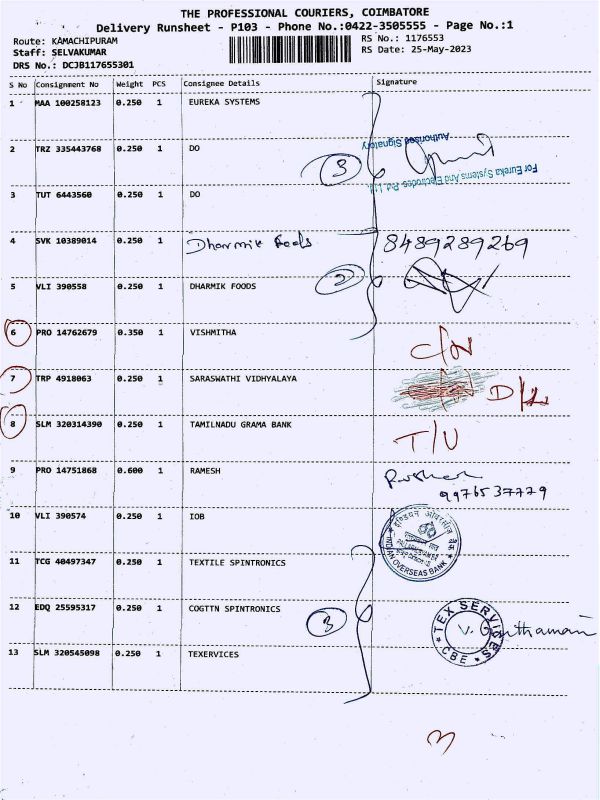 THE PROFESSIONAL COURIERS, COIMBATORE
Delivery Runsheet - P103 - Phone No.:0422-3505555 - Page No.:1
Route: KAMACHIPURAM RS No.: 1176553
Staff: SELVAKUMAR RS Date: 25-May-2023
DRS No.: DCJB117655301
S No Consignment No Weight PCS Consignee Details Signature
1 MAA 100258123 0.250 1 EUREKA SYSTEMS
2 TRZ 335443768 0.250 1 DO
Authorised Signatory
3
For Eureka Systems And Electrodes Pvt. Ltd.
3 TUT 6443560 0.250 1 DO
4 SVK 10389014 0.250 1 Dharmik Foods 8489289269
2
5 VLI 390558 0.250 1 DHARMIK FOODS
6 PRO 14762679 0.350 1 VISHMITHA
C/N
7 TRP 4918063 0.250 1 SARASWATHI VIDHYALAYA
D/L
8 SLM 320314390 0.250 1 TAMILNADU GRAMA BANK
T/U
9 PRO 14751868 0.600 1 RAMESH
9976537779
10 VLI 390574 0.250 1 IOB
इण्डियन ओवरसीज़ बैंक
INDIAN OVERSEAS BANK
11 TCG 40497347 0.250 1 TEXTILE SPINTRONICS
12 EDQ 25595317 0.250 1 COGTTN SPINTRONICS
3
TEX SERVICES
V. Ganthamani
CBE
13 SLM 320545098 0.250 1 TEXERVICES
3